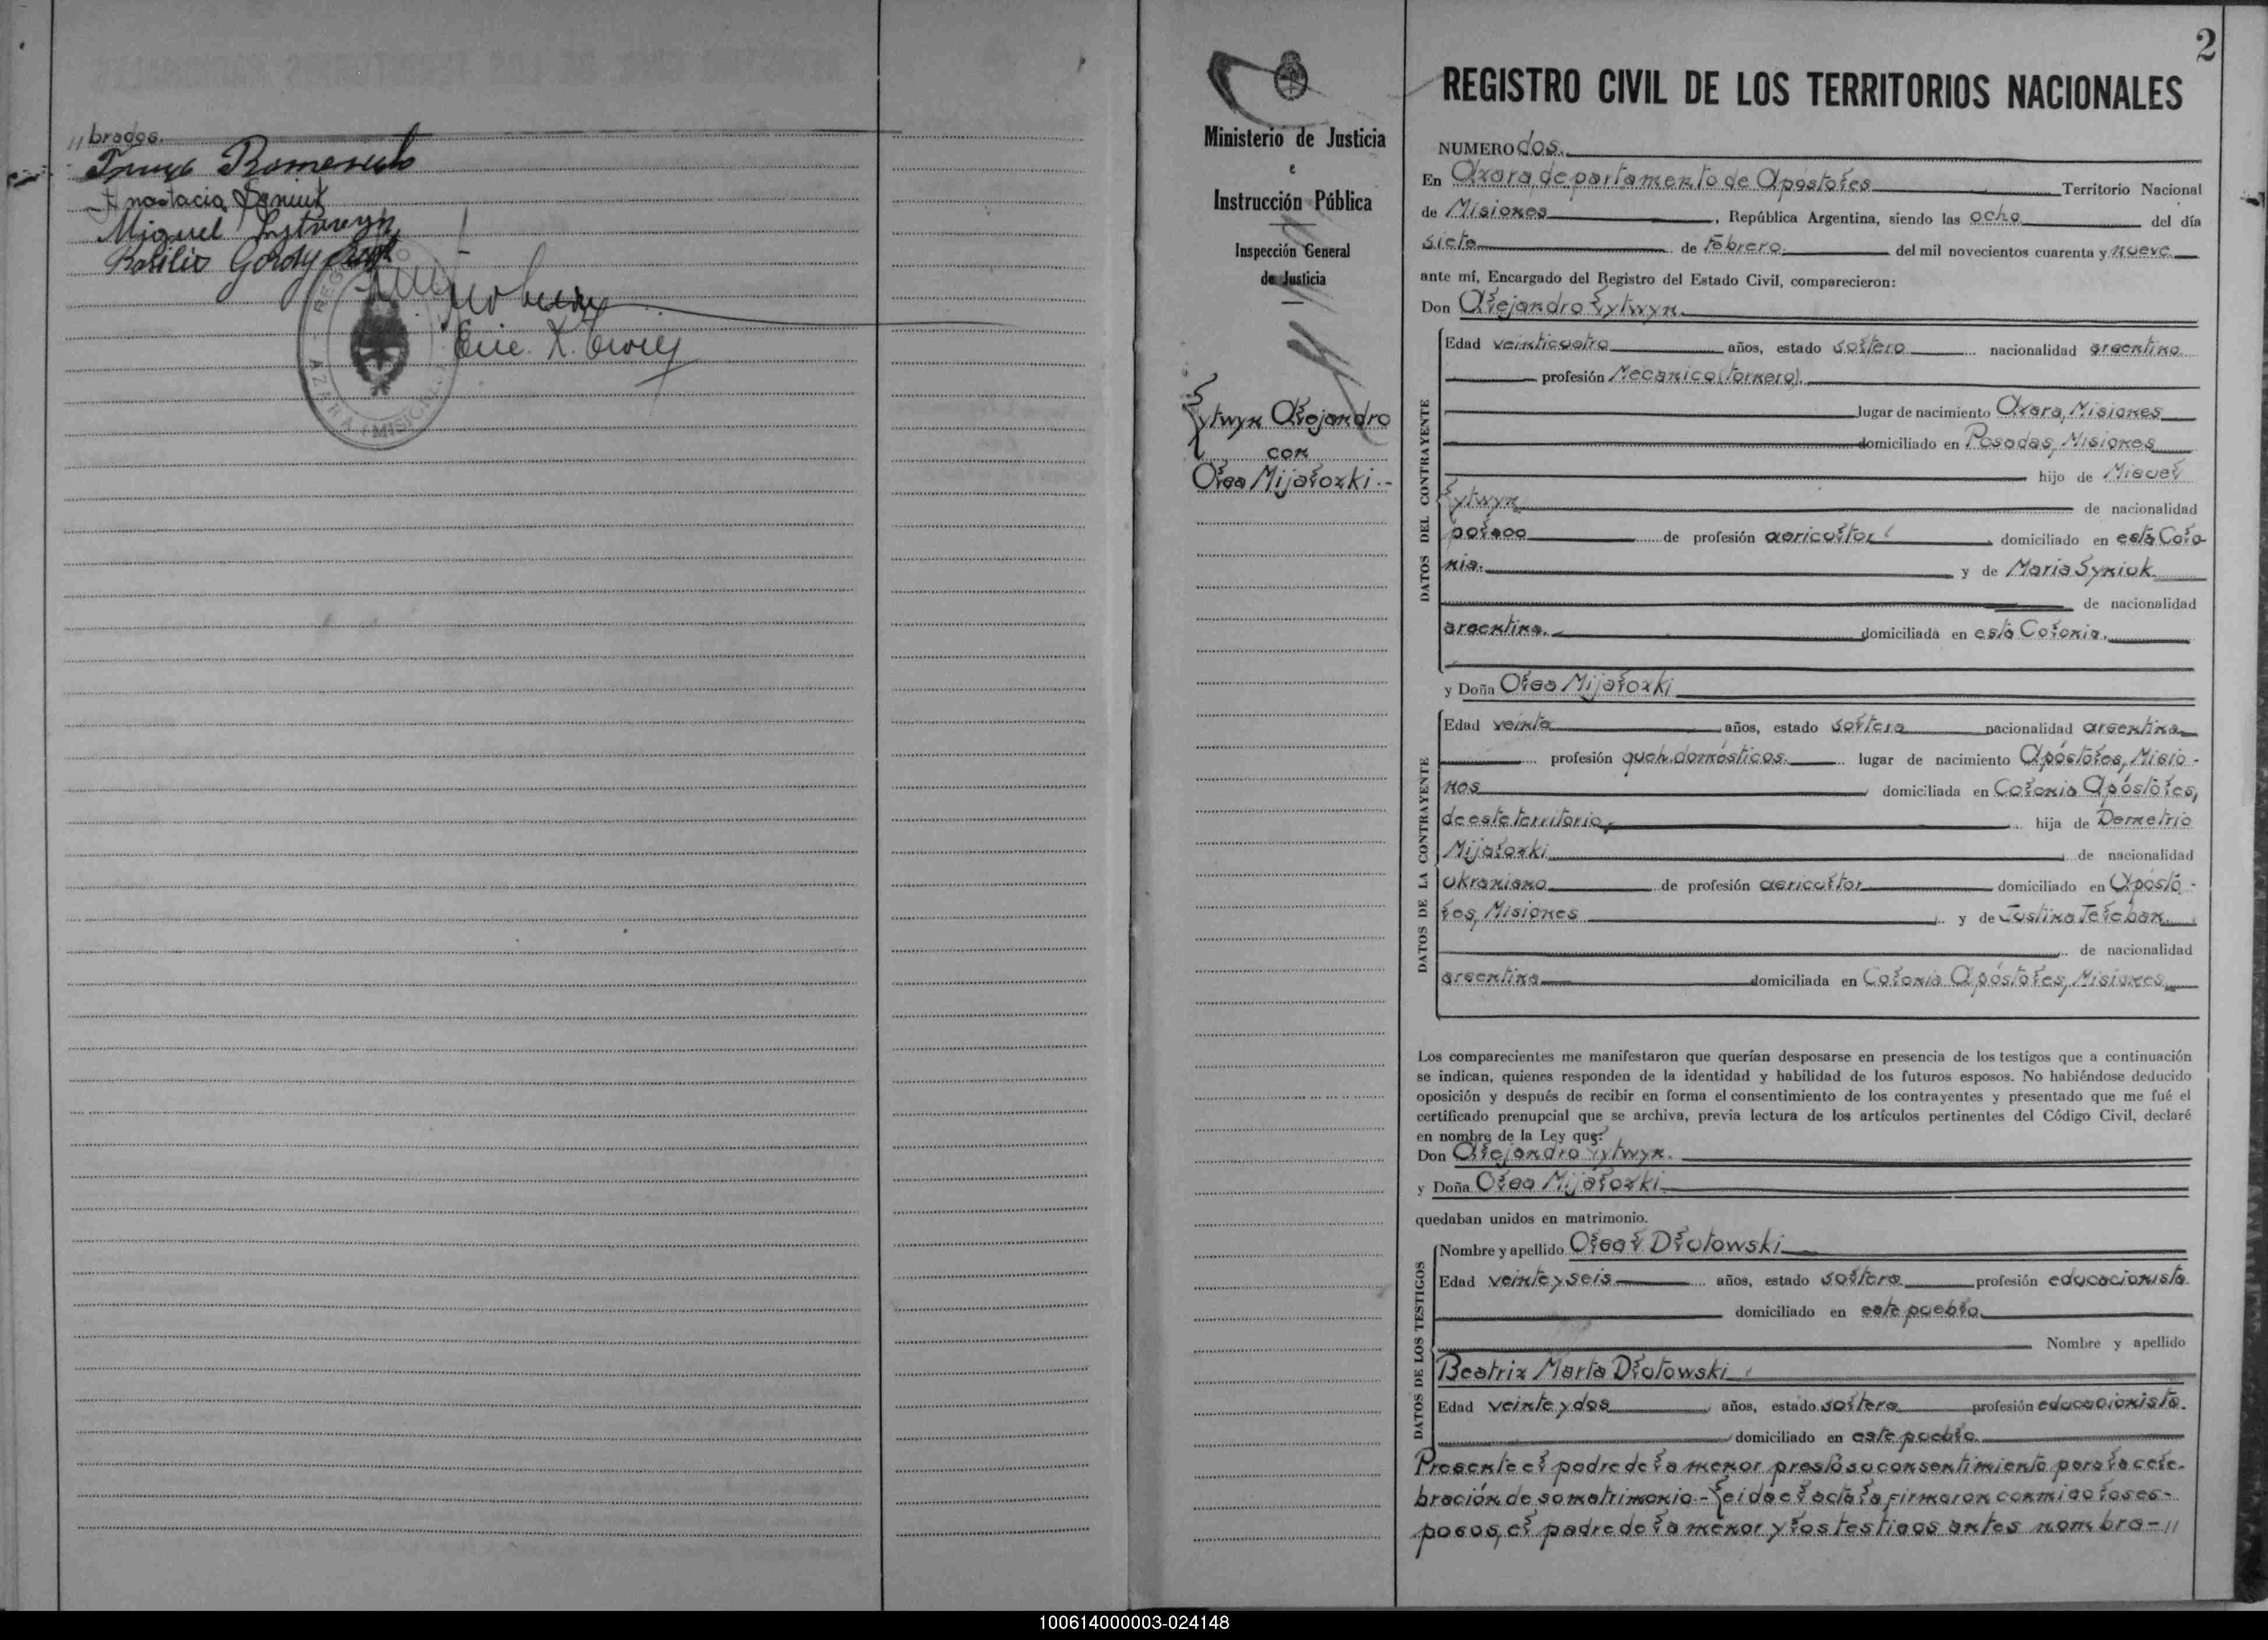 //brados.
Anastacia Syniuk
Miguel Lytwyn
Basilio
Enc. R. Civil
AZARA (MISIONES)
2
REGISTRO CIVIL DE LOS TERRITORIOS NACIONALES
Ministerio de Justicia
e
Instrucción Pública
Inspección General
de Justicia
Lytwyn Alejandro
con
Olga Mijalozki.-
NUMERO dos.
En Azara, departamento de Apóstoles Territorio Nacional
de Misiones, República Argentina, siendo las ocho del día
siete de Febrero. del mil novecientos cuarenta y nueve
ante mí, Encargado del Registro del Estado Civil, comparecieron:
Don Alejandro Lytwyn.
DATOS DEL CONTRAYENTE
Edad veinticuatro años, estado soltero nacionalidad argentino
profesión Mecanico (tornero).
lugar de nacimiento Azara, Misiones
domiciliado en Posadas, Misiones
hijo de Miguel
Lytwyn de nacionalidad
polaco de profesión agricultor domiciliado en esta Colo-
nia. y de Maria Syniuk
de nacionalidad
argentina. domiciliada en esta Colonia.
y Doña Olga Mijalozki
DATOS DE LA CONTRAYENTE
Edad veinte años, estado soltera nacionalidad argentina
profesión queh. domésticos. lugar de nacimiento Apóstoles, Misio-
nes domiciliada en Colonia Apóstoles,
de este territorio, hija de Demetrio
Mijalozki de nacionalidad
ukraniano de profesión agricultor domiciliado en Apósto-
les, Misiones y de Justina Teleban
de nacionalidad
argentina domiciliada en Colonia Apóstoles, Misiones
Los comparecientes me manifestaron que querían desposarse en presencia de los testigos que a continuación
se indican, quienes responden de la identidad y habilidad de los futuros esposos. No habiéndose deducido
oposición y después de recibir en forma el consentimiento de los contrayentes y presentado que me fué el
certificado prenupcial que se archiva, previa lectura de los artículos pertinentes del Código Civil, declaré
en nombre de la Ley que:
Don Alejandro Lytwyn.
y Doña Olga Mijalozki
quedaban unidos en matrimonio.
DATOS DE LOS TESTIGOS
Nombre y apellido Olga L Dlutowski
Edad veinte y seis años, estado soltera profesión educacionista
domiciliado en este pueblo.
Nombre y apellido
Beatriz Marta Dlutowski
Edad veinte y dos años, estado soltera profesión educacionista.
domiciliado en este pueblo
Presente el padre de la menor prestó su consentimiento para la cele-
bración de su matrimonio.- Leida el acta la firmaron conmigo los es-
posos, el padre de la menor y los testigos antes nombra-//
100614000003-024148